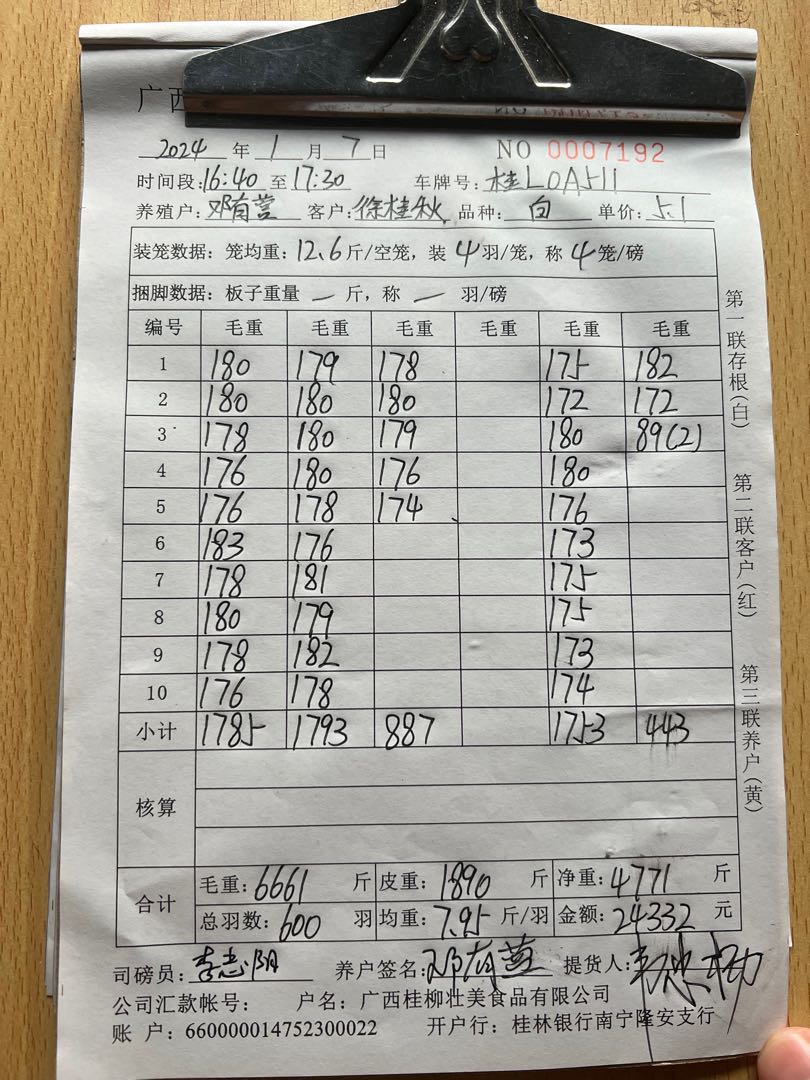 广西
2024 年 1 月 7 日 NO 0007192
时间段:16:40 至 17:30 车牌号: 桂L0A511
养殖户: 邓有营 客户: 徐桂秋 品种: 白 单价: 5.1
装笼数据: 笼均重: 12.6 斤/空笼, 装 4 羽/笼, 称 4 笼/磅
捆脚数据: 板子重量 — 斤, 称 — 羽/磅
编号 毛重 毛重 毛重 毛重 毛重 毛重
1 180 179 178 175 182
2 180 180 180 172 172
3 178 180 179 180 89(2)
4 176 180 176 180
5 176 178 174 176
6 183 176 173
7 178 181 175
8 180 179 175
9 178 182 173
10 176 178 174
小计 1785 1793 887 1753 443
核算
合计
毛重: 6661 斤 皮重: 1890 斤 净重: 4771 斤
总羽数: 600 羽 均重: 7.95 斤/羽 金额: 24332 元
司磅员: 李志阴 养户签名: 邓有营 提货人:
公司汇款帐号: 户名: 广西桂柳壮美食品有限公司
账 户: 660000014752300022 开户行: 桂林银行南宁隆安支行
第一联存根(白)
第二联客户(红)
第三联养户(黄)